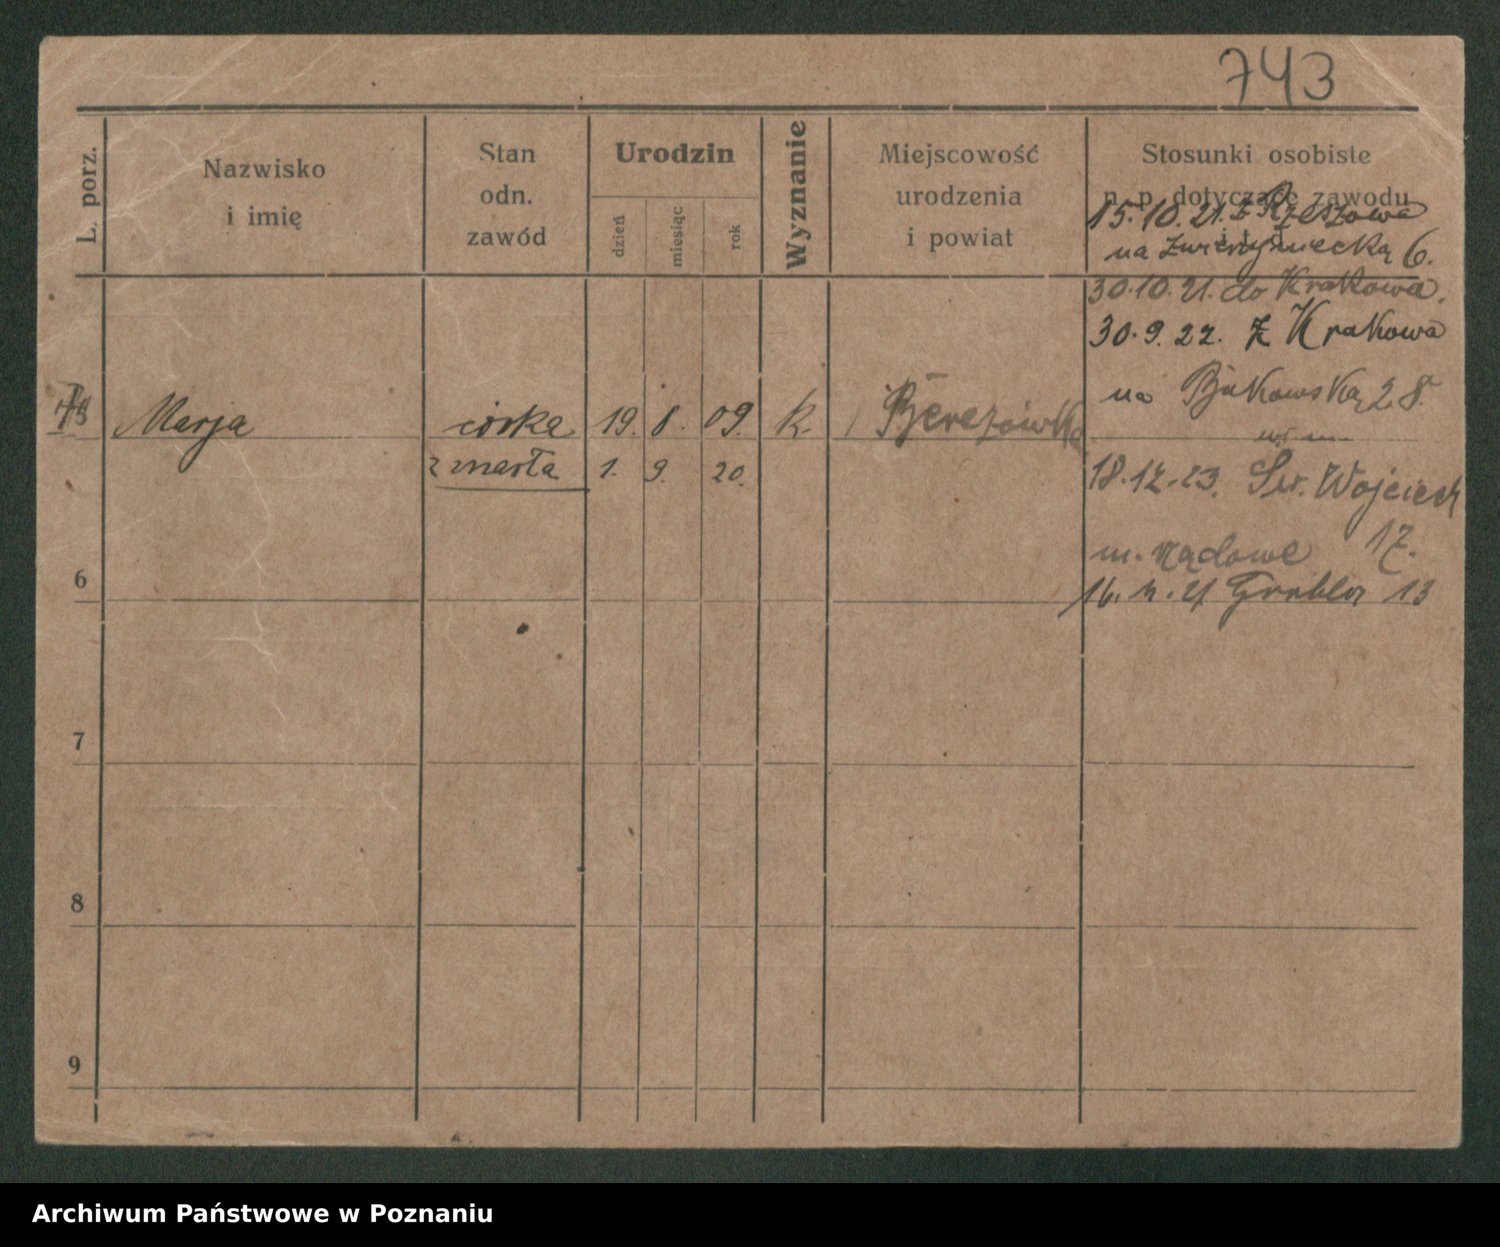 743
L. porz.
Nazwisko
i imię
Stan
odn.
zawód
Urodzin
dzień
miesiąc
rok
Wyznanie
Miejscowość
urodzenia
i powiat
Stosunki osobiste
n. p. dotyczące zawodu
15.10.21. z Rzeszowa
na Zwierzyniecką 6.
30.10.21. do Krakowa.
30.9.22. z Krakowa
na Bukowską 28.
Marja córka 19. 8. 09. k. Berezówka
zmarła 1. 9. 20.
18.12.23. Św. Wojciech
17.
m. rządowe
6
Grobla 13
7
8
9
Archiwum Państwowe w Poznaniu